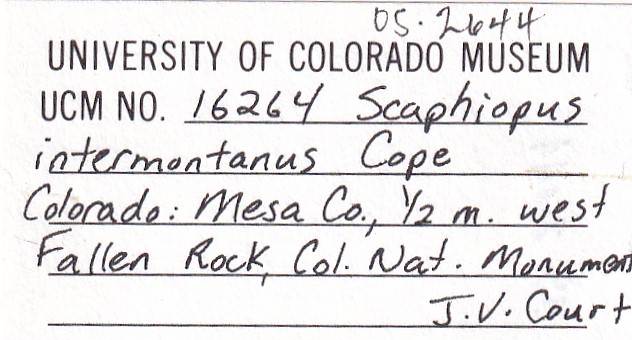 OS·2644
UNIVERSITY OF COLORADO MUSEUM
UCM NO. 16264 Scaphiopus
intermontanus Cope
Colorado: Mesa Co., 1/2 m. west
Fallen Rock, Col. Nat. Monument
J.V. Court